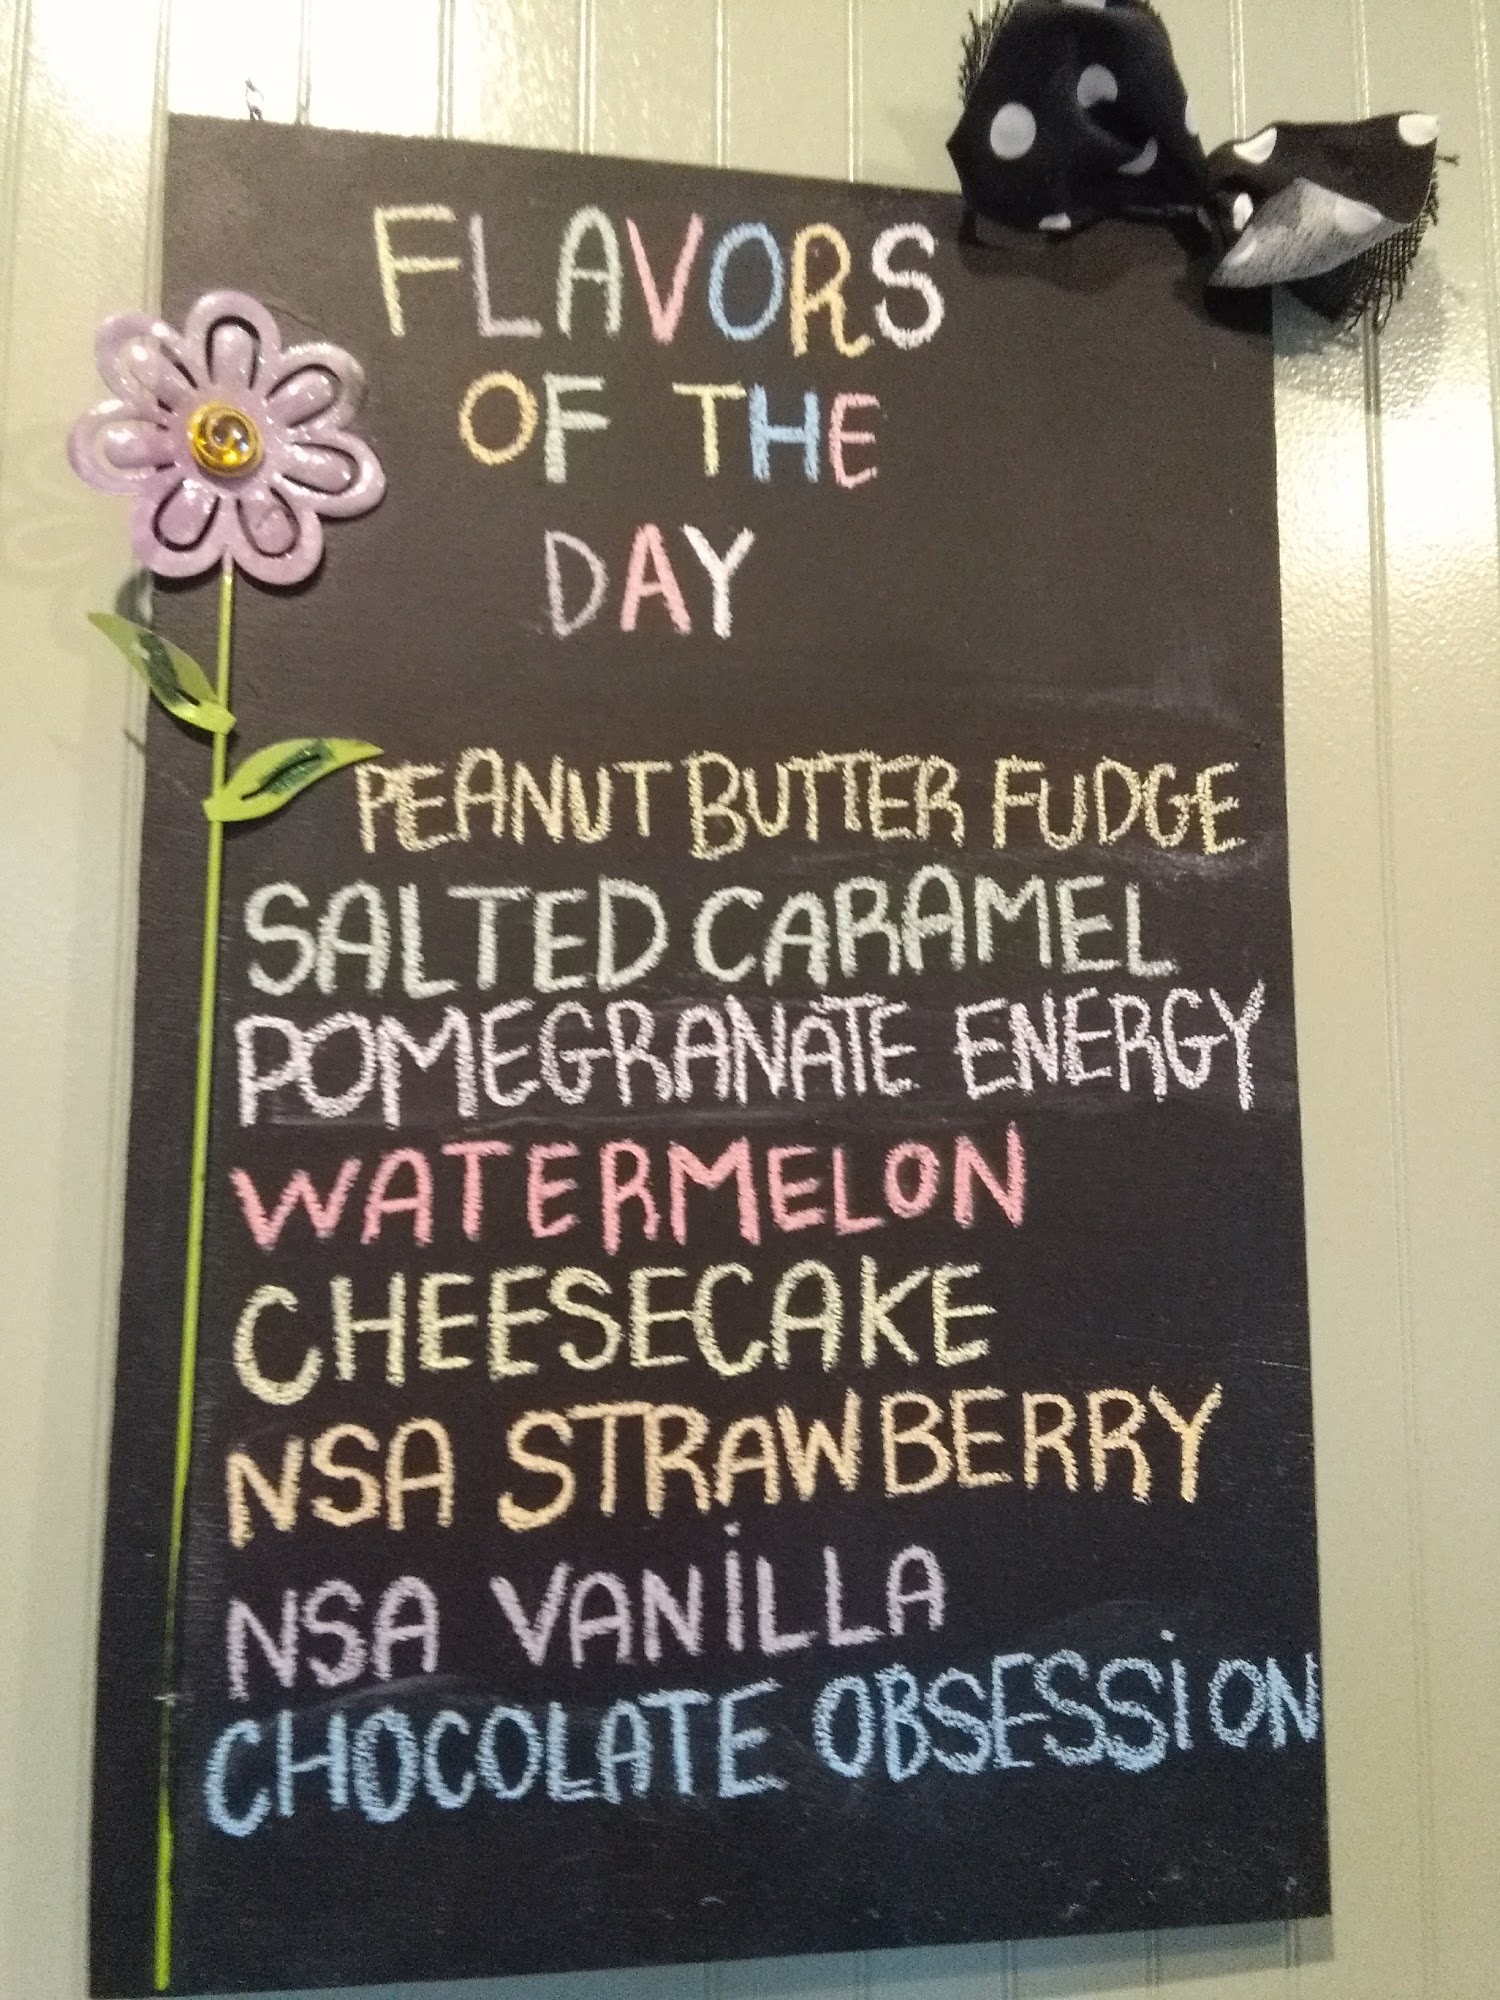 FLAVORS
OF THE
DAY
PEANUT BUTTER FUDGE
SALTED CARAMEL
POMEGRANATE ENERGY
WATERMELON
CHEESECAKE
NSA STRAWBERRY
NSA VANiLLA
CHOCOLATE OBSESSiON